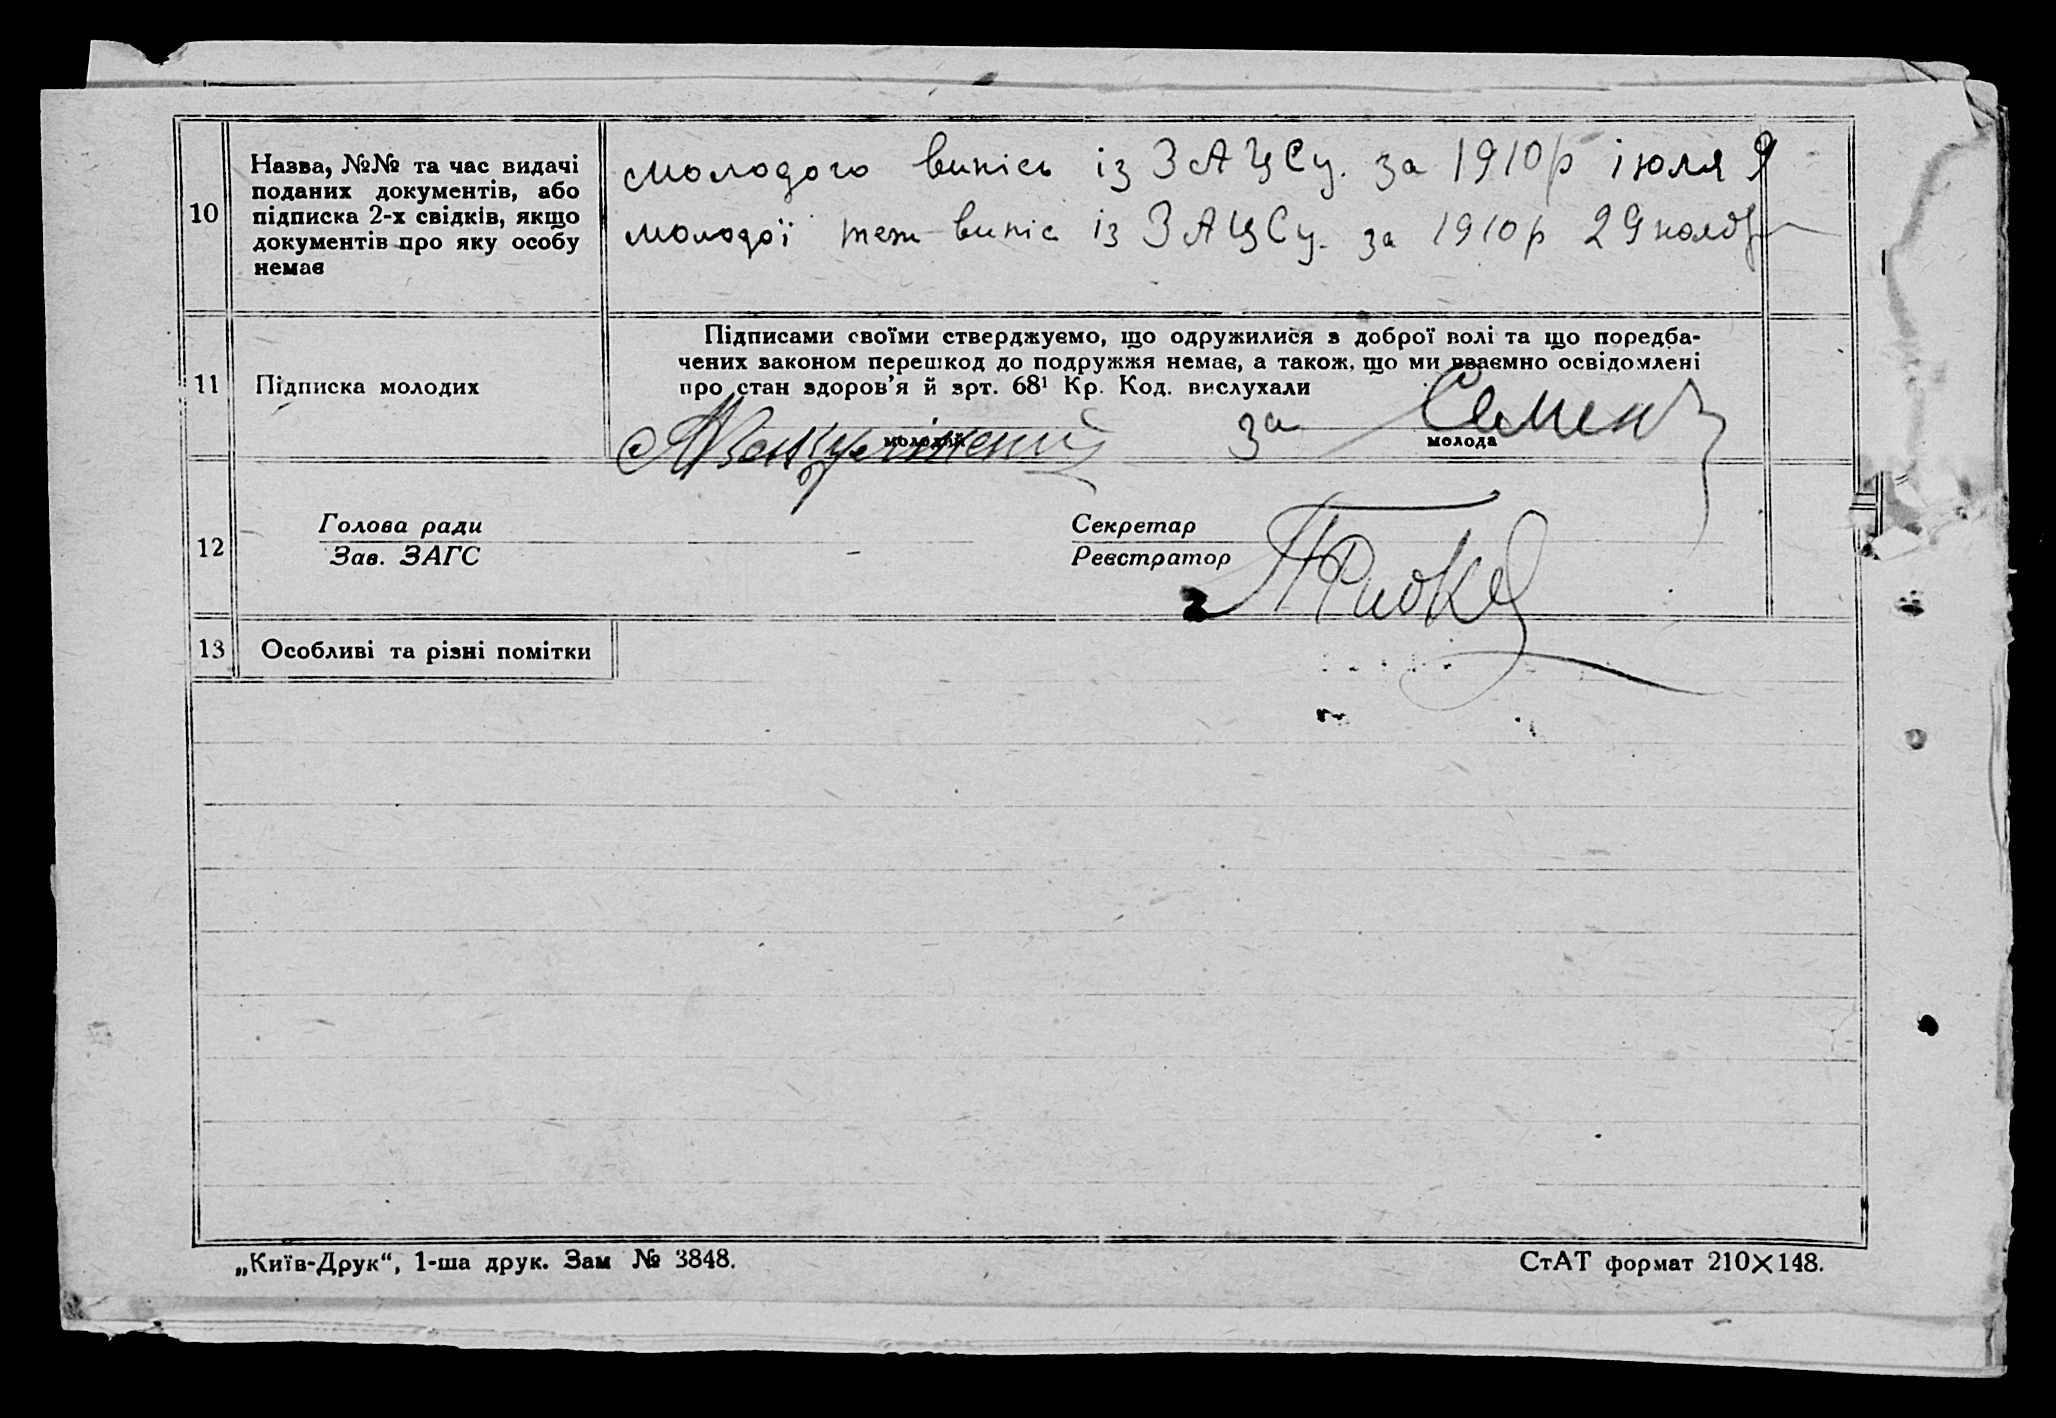 10
Назва, №№ та час видачі
поданих документів, або
підписка 2-х свідків, якщо
документів про яку особу
немає
молодого випісь із ЗАЦСу. за 1910р іюля 9
молодої теж випіс із ЗАЦСу. за 1910р 29 ноябр
11
Підписка молодих
Підписами своїми стверджуємо, що одружилися з доброї волі та що поредба-
чених законом перешкод до подружжя немає, а також, що ми взаємно освідомлені
про стан здоров'я й зрт. 68¹ Кр. Код. вислухали
за Семен
молодий
молода
12
Голова ради
Зав. ЗАГС
Секретар
Реєстратор
13
Особливі та різні помітки
„Київ-Друк“, 1-ша друк. Зам № 3848.
СтАТ формат 210×148.